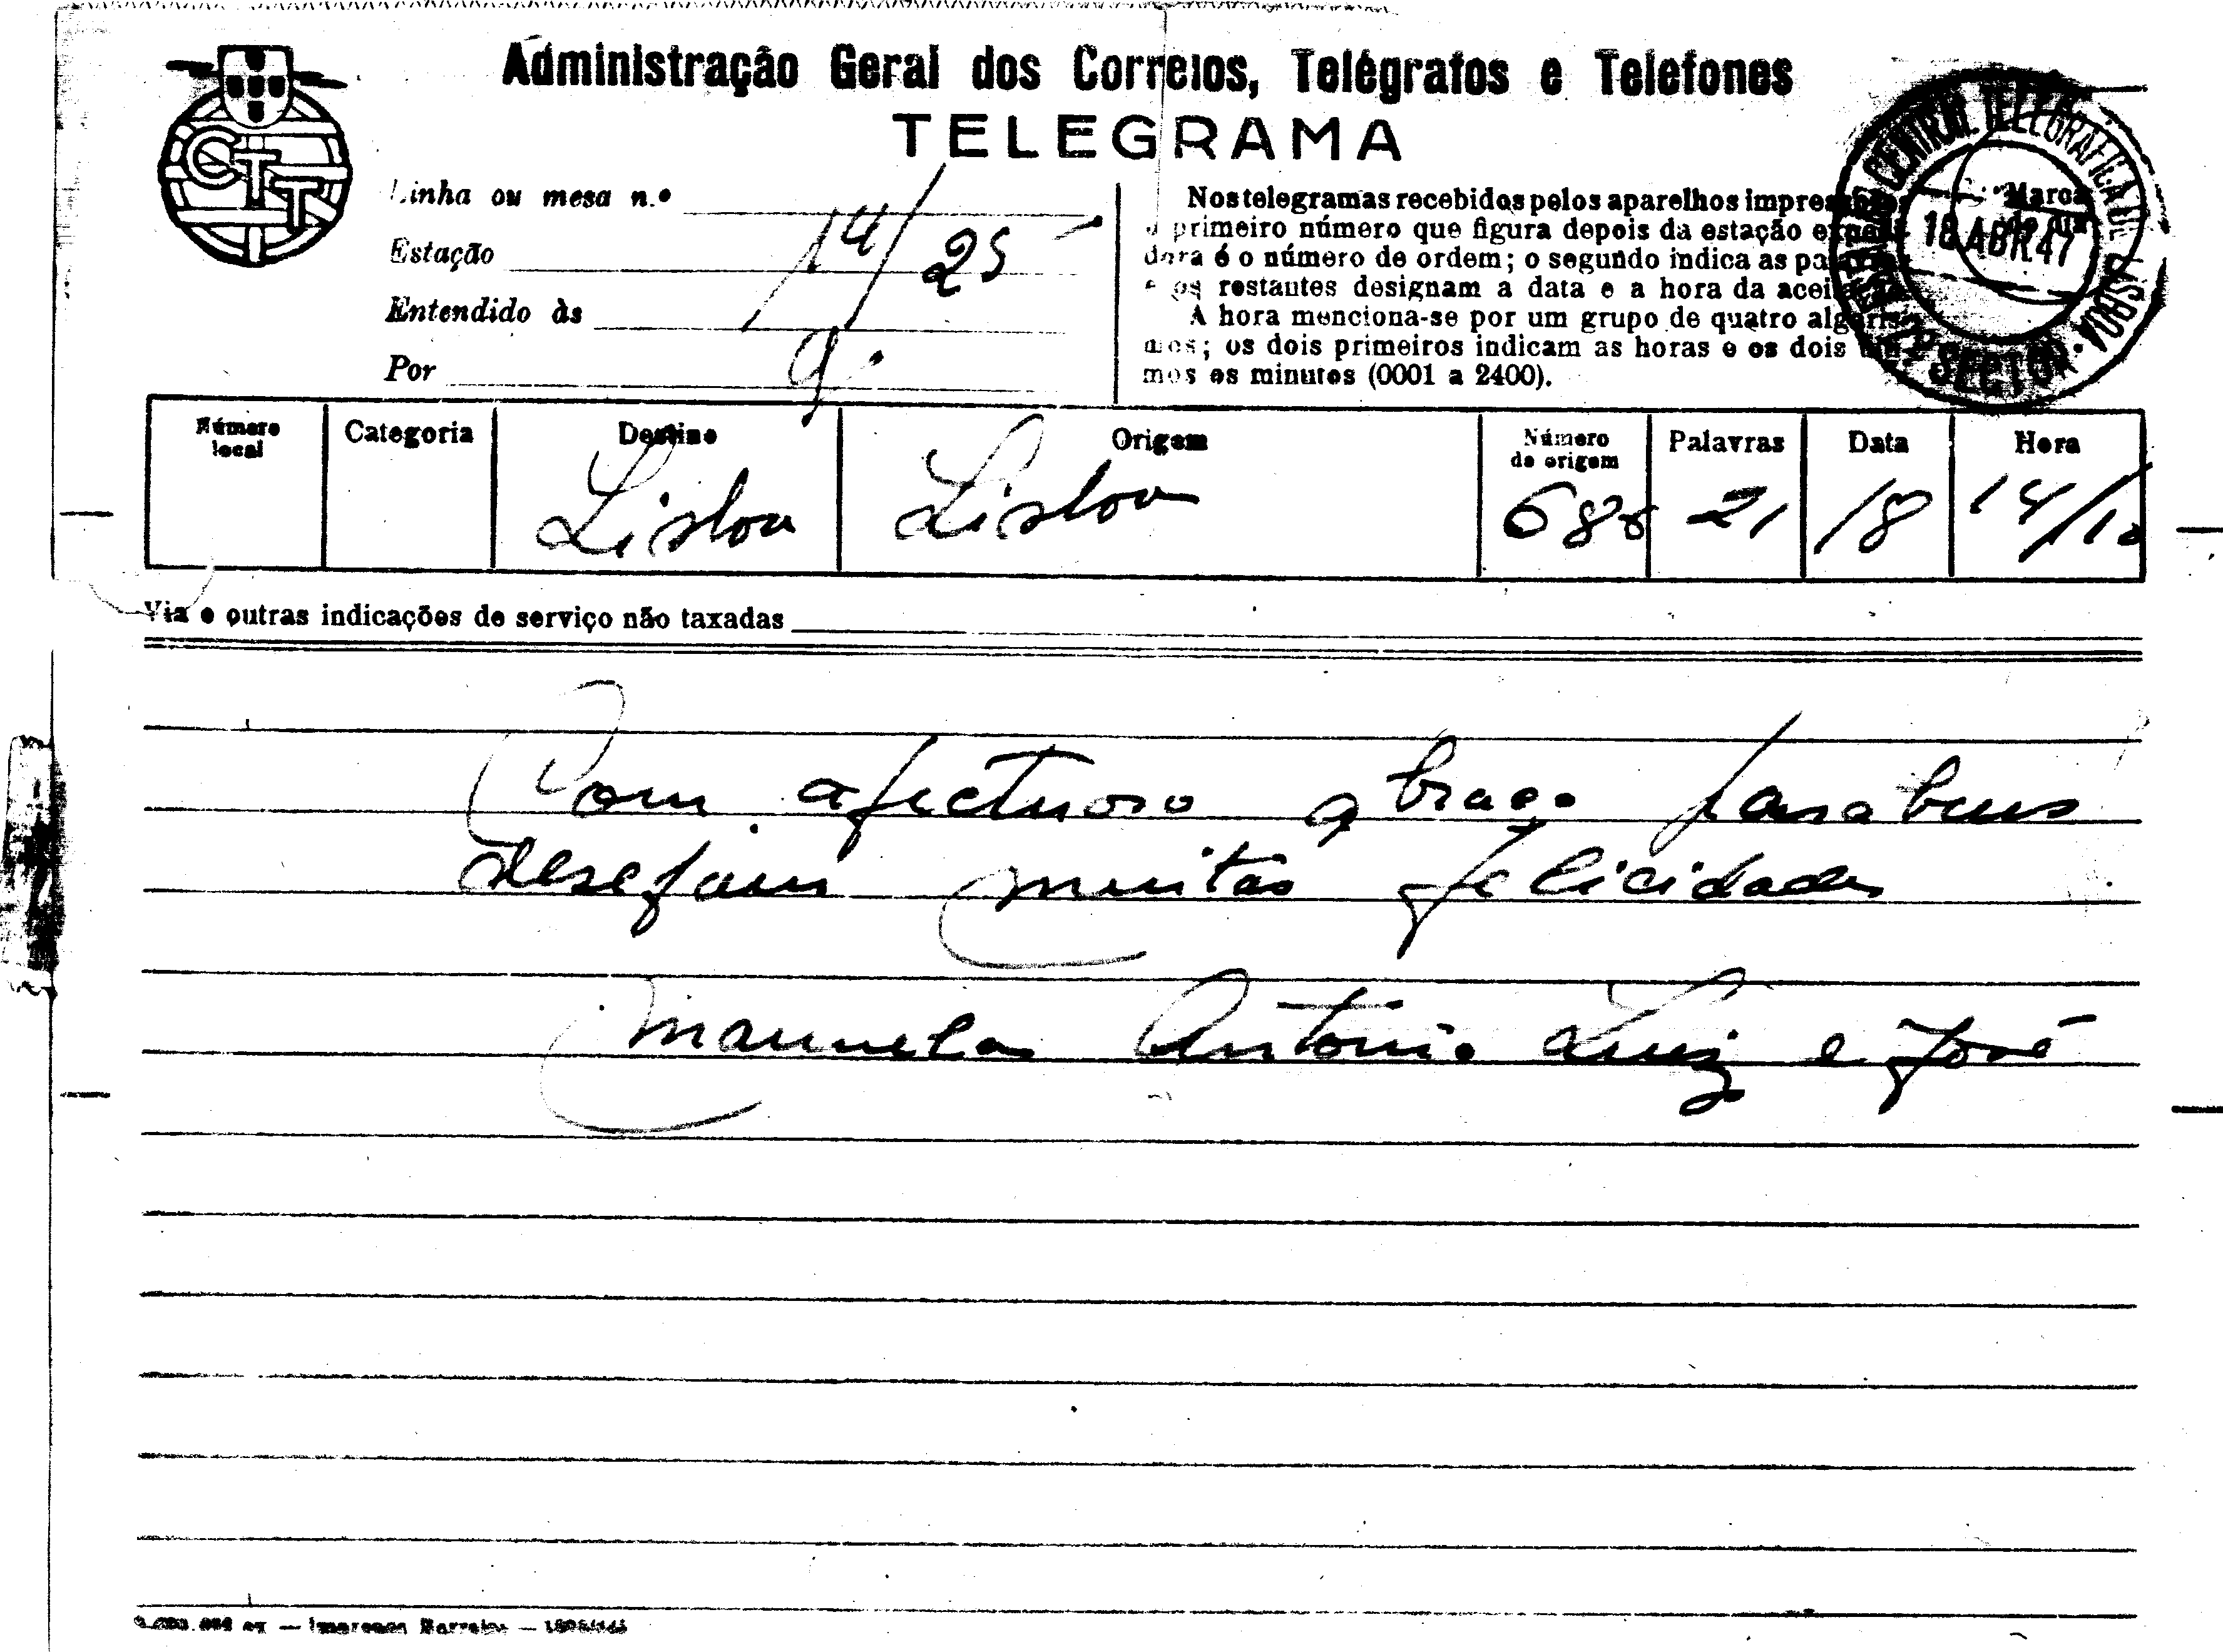 Administração Geral dos Correios, Telégrafos e Telefones
TELEGRAMA
CTT
Linha ou mesa n.º
Estação
Entendido às 14/25
Por
Nos telegramas recebidos pelos aparelhos impressores
o primeiro número que figura depois da estação expedi-
dora é o número de ordem; o segundo indica as palavras
e os restantes designam a data e a hora da aceitação.
A hora menciona-se por um grupo de quatro algaris-
mos; os dois primeiros indicam as horas e os dois últi-
mos os minutos (0001 a 2400).
Marca do dia
CENTRAL TELEGRÁFICA DE LISBOA
18 ABR. 47
SECTOR
Número local Categoria Destino Origem Número de origem Palavras Data Hora
Lisboa Lisboa 688 21 18 14/10
Via e outras indicações de serviço não taxadas
Com afectuoso abraço parabens
desejam muitas felicidades
Manuela Antonio Luiz e José